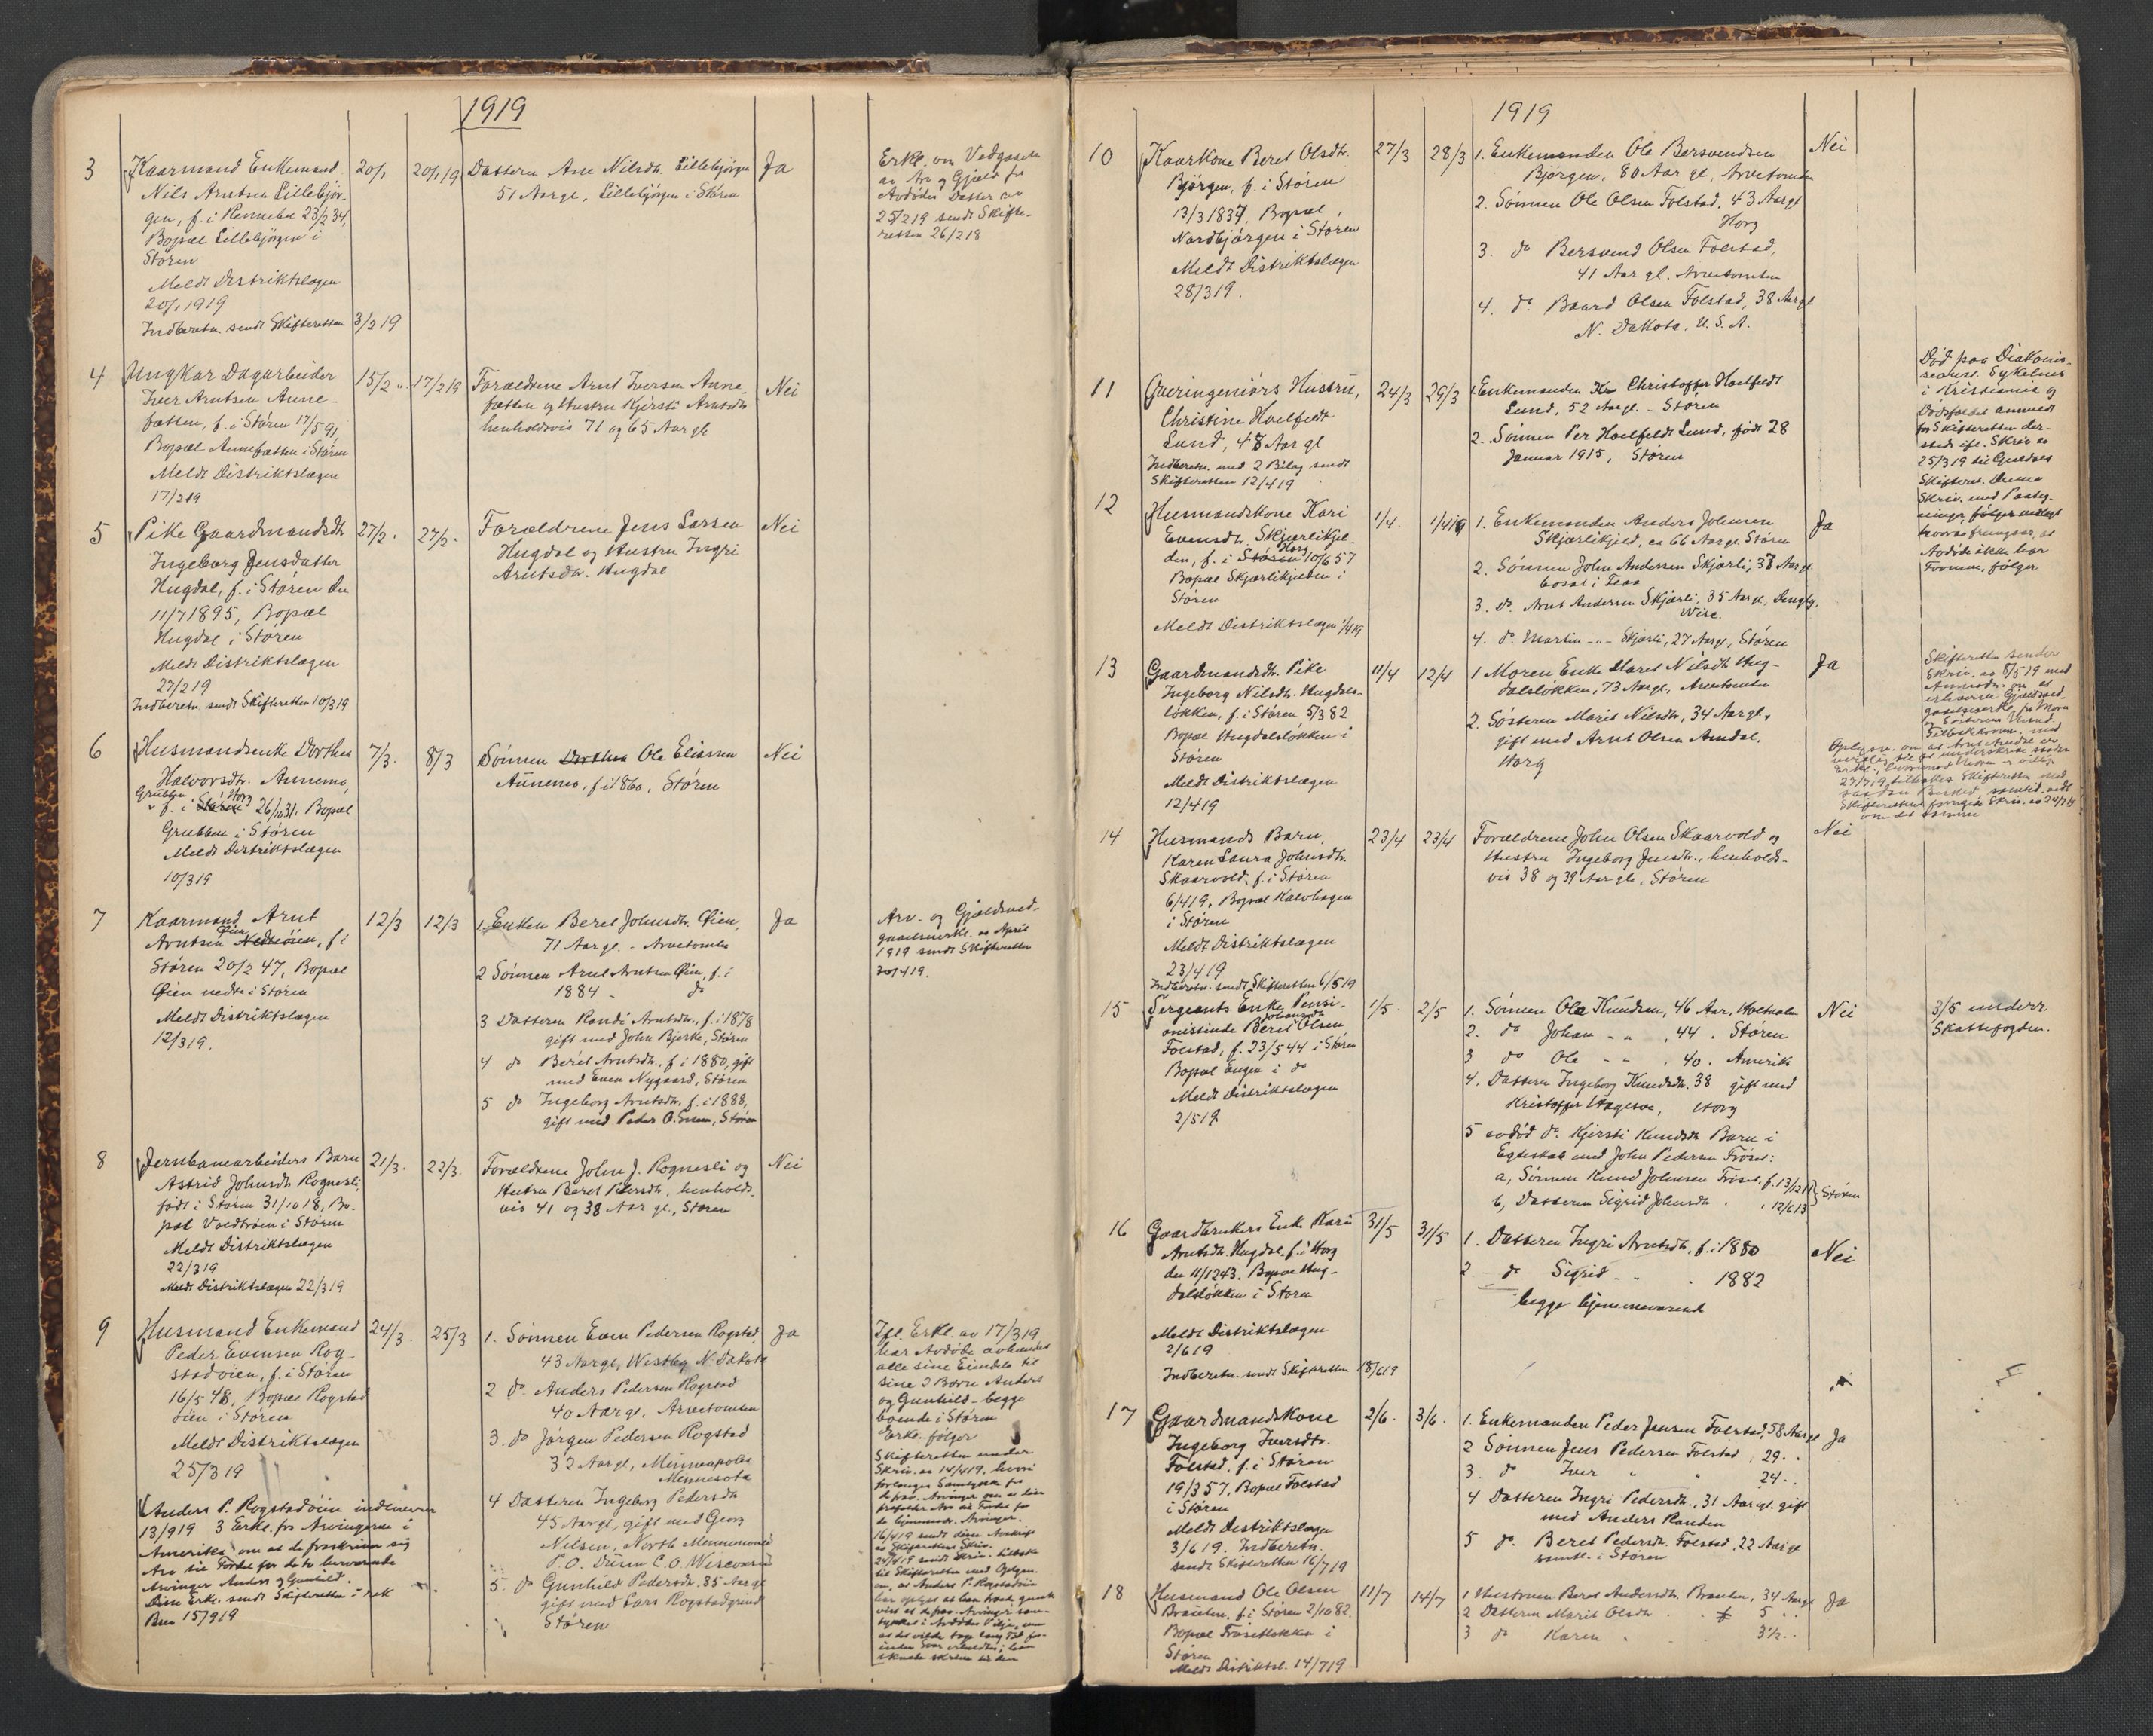 1919
3
Kaarmand Enkemand
Nils Arntsen Lillebjör-
gen, f. i Rennebu 23/2 34,
Bopæl Lillebjörgen i
Stören
Meldt Distriktslægen
20/1 1919
Indberetn. sendt Skifteretten 3/2 19
20/1
20/1 19
Datteren Ane Nilsdtr. Lillebjörgen
51 Aar gl., Lillebjörgen i Stören
Ja
Erkl. om Vedgaaelse
av Arv og Gjæld fra
Avdödes Datter av
25/2 19 sendt Skifte-
retten 26/2 18
4
Ungkar Dagarbeider
Iver Arntsen Aune-
fætten, f. i Stören 17/5 91,
Bopæl Aunefætten i Stören
Meldt Distriktslægen
17/2 19
15/2
17/2 19
Forældrene Arnt Iversen Aune-
fætten og Hustru Kjersti Arntsdtr.
henholdsvis 71 og 65 Aar gle
Nei
5
Pike Gaardmandsdtr.
Ingeborg Jensdatter
Hugdal, f. i Stören den
11/7 1895, Bopæl
Hugdal i Stören
Meldt Distriktslægen
27/2 19
Indberetn. sendt Skifteretten 10/3 19
27/2.
27/2.
Forældrene Jens Larsen
Hugdal og Hustru Ingri
Arntsdtr. Hugdal
Nei
6
Husmandsenke Dorthea
Halvorsdtr. Aunemo,
Grubben Horg
f. i Stören 26/10 31. Bopæl
Grubben i Stören
Meldt Distriktslægen
10/3 19
7/3.
8/3
Sönnen Dorthea Ole Eliassen
Aunemo, f. i 1860, Stören
Nei
7
Kaarmand Arnt
Arntsen Øien Nedreöien, f. i
Stören 20/2 47, Bopæl
Øien nedre i Stören
Meldt Distriktslægen
12/3 19.
12/3
12/3
1. Enken Beret Johnsdtr. Øien,
71 Aar gl. - Arvetomten
2 Sönnen Arnt Arntsen Øien, f. i
1884 - do
3 Datteren Randi Arntsdtr., f. i 1878
gift med John Bjerke, Stören
4 do Beret Arntsdtr. f. i 1880, gift
med Even Nygaard, Stören
5 do Ingeborg Arntsdtr. f. i 1888,
gift med Peder O. Snoen, Stören
Ja
Arv- og Gjældsved-
gaaelseserkl. av April
1919 sendt Skifteretten
30/4 19.
8
Jernbanearbeiders Barn
Astrid Johnsdtr. Rognesli,
födt i Stören 31/10 18, Bo-
pæl Voldtröen i Stören
Meldt Distriktslægen
22/3 19
Meldt Distriktslægen 22/3 19
21/3.
22/3.
Forældrene John J. Rognesli og
Hustru Beret Pedersdtr., henholds-
vis 41 og 38 Aar gl., Stören
Nei
9
Husmand Enkemand
Peder Evensen Rog-
stadöien, f. i Stören
16/5 48, Bopæl Rogstad
öien i Stören
Meldt Distriktslægen
25/3 19
Anders P. Rogstadöien indleverer
13/9 19 3 Erkl. fra Arvingerne i
Amerika om at de fraskriver sig
Arv til Fordel for de to herværende
Arvinger Anders og Gunhild.
Disse Erkl. sendt Skifteretten i rek
Brev 15/9 19
24/3.
25/3
1. Sönnen Even Pedersen Rogstad
43 Aar gl., Westby N. Dakota
2 do. Anders Pedersen Rogstad
40 Aar gl. Arvetomten
3. do Jörgen Pedersen Rogstad
32 Aar gl., Minneapolis
Minnesota
4 Datteren Ingeborg Pedersdtr
45 Aar gl., gift med Georg
Nilsen, North Menomonie
P.O. Dunn C.O. Wisconsin
5. do Gunhild Pedersdtr. 35 Aar gl
gift med Lars Rogstadgrind
Stören
Ja
Ifl. Erkl. av 17/3 19
har Avdöde avhændet
alle sine Eiendele til
sine 2 Börn Anders
og Gunhild - begge
boende i Stören
Erkl. fölger
Skifteretten sender
Skriv. av 14/4 19, hvori
forlanges Samtykke fra
de fra. Arvinger om at den
frafalder Arv til Fordel for
de hjemmev. Arvinger.
16/4 19 sendt dem Avskrift
av Skifterettens Skriv.
24/4 19 sendt Skriv. tilbake
til Skifteretten med Oplysn.
om, at Anders P. Rogstadöien
1919
10
Kaarkone Beret Olsdtr.
Björgen, f. i Stören
13/3 1837, Bopæl
Nordbjörgen i Stören
Meldt Distriktslægen
28/3 19.
27/3
28/3
1. Enkemanden Ole Bersvendsen
Björgen, 80 Aar gl, Arvetomten
2. Sönnen Ole Olsen Folstad, 43 Aar gl
Horg
3. do Bersvend Olsen Folstad,
41 Aar gl. Arvetomten
4. do Baard Olsen Folstad, 38 Aar gl
N. Dakota, U.S.A.
Nei
11
Overingeniörs Hustru,
Christine Hoelfeldt
Lund, 48 Aar gl
Indberetn. med 2 Bilag sendt
Skifteretten 12/4 19
24/3
29/3
1. Enkemanden Kr Christoffer Hoelfeldt
Lund, 52 Aar gl. - Stören
2. Sönnen Per Hoelfeldt Lund, födt 28
Januar 1915, Stören
Död paa Diakonis-
seanst. Sykehus
i Kristiania og
Dödsfaldet anmeldt
for Skifteretten der-
steds ifl. Skriv av
25/3 19 til Guldals
Skifteret. Denne
Skriv. med Paateg-
ninger, fölger vedlagt
hvorav fremgaar, at
Avdöde ikke har
Formue, fölger
12
Husmandskone Kari
Evensdtr. Skjærlikjel-
den, f. i Stören Horg 10/6 57
Bopæl Skjærlikjelden i
Stören
Meldt Distriktslægen 1/4 19
1/4.
1/4 19
1. Enkemanden Anders Johnsen
Skjærlikjeld, ca 66 Aar gl. Stören
2. Sönnen John Andersen Skjærli, 37 Aar gl.
bosat i
3. do. Arnt Andersen Skjærli, 35 Aar gl.,
Wisc.
4. do Martin -"- Skjærli, 27 Aar gl, Stören
Ja
13
Gaardmandsdtr. Pike
Ingeborg Nilsdtr. Hugdals-
lökken, f. i Stören, 5/3 82
Bopæl Hugdalslökken i
Stören
Meldt Distriktslægen
12/4 19
11/4
12/4
1 Moren Enke Maret Nilsdtr Hug-
dalslökken, 73 Aar gl., Arvetomten
2. Sösteren Marit Nilsdtr, 34 Aar gl.,
gift med Arnt Olsen Amdal,
Horg
Ja
Skifteretten sender
Skriv. av 5/5 19 med
Anmodn. om at
erhverve Gjældsved-
gaaelseserkl. fra Moren
og Sösteren
Tilbakkomm. med
Oplysn. om at Arnt Amdal er
villig til at underskrive saadan
27/7 19 tilbakes. Skifteretten med
saadan Besked, samtid. m
14
Husmands Barn,
Karen Laura Johnsdtr.
Skaarvold, f. i Stören
6/4 19, Bopæl Kalvhagen
i Stören
Meldt Distriktslægen
23/4 19
Indberetn. sendt Skifteretten 6/5 19
23/4
23/4
Forældrene John Olsen Skaarvold og
Hustru Ingeborg Jensdtr., henholds-
vis 38 og 39 Aar gle, Stören
Nei
15
Sergeants Enke Pensi-
onistinde Beret Johansdtr Olsen
Folstad, f. 23/5 44 i Stören
Bopæl Engen i do
Meldt Distriktslægen
2/5 19
1/5.
2/5
1. Sönnen Ole Knudsen, 46 Aar, Holtaalen
2. do Johan - " , 44 . Stören
3 do Ole - " . 40. Amerika
4. Datteren Ingeborg Knudsdtr. 38 gift med
Kristoffer Hagesve, Horg
5 avdöd do. Kjersti Knudsdtr. Barn i
Egteskab med John Pedersen Fröset:
a, Sönnen Knud Johnsen Fröset, f. 13/12 11
b, Datteren Sigrid Johnsdtr. . . 12/6 13
} Stören
Nei
3/5 underr.
Skattefogden.
16
Gaardbrukers Enke Kari
Arntsdtr. Hugdal, f. i Horg
den 11/12 43. Bopæl Hug-
dalslökken i Stören
Meldt Distriktslægen
2/6 19
Indberetn. sendt Skifteretten 18/6 19
31/5
31/5
1. Datteren Ingri Arntsdtr, f. i 1880
2 do Sigrid - . . 1882
begge hjemmeværende
Nei
17
Gaardmandskone
Ingeborg Iversdtr.
Folstad, f. i Stören
19/3 57, Bopæl Folstad
i Stören
Meldt Distriktslægen
3/6 19. Indberetn.
sendt Skifteretten 16/7 19
2/6.
3/6.
1. Enkemanden Peder Jensen Folstad, 58 Aar gl
2 Sönnen Jens Pedersen Folstad , 29 . .
3. do Iver " " 24 . .
4 Datteren Ingri Pedersdtr., 31 Aar gl. gift
med Anders Randen
5 do. Beret Pedersdtr. Folstad, 22 Aar gl
samtl. i Stören
Ja
18
Husmand Ole Olsen
Braaten, f. i Stören 2/10 82.
Bopæl Frösetlökken i
Stören
Meldt Distriktsl. 14/7 19
11/7
14/7
1 Hustruen Beret Andersdtr. Braaten, 34 Aar gl
2 Datteren Marit Olsdtr . . 5 . .
3 do Karen . . 3 1/2 . .
Ja